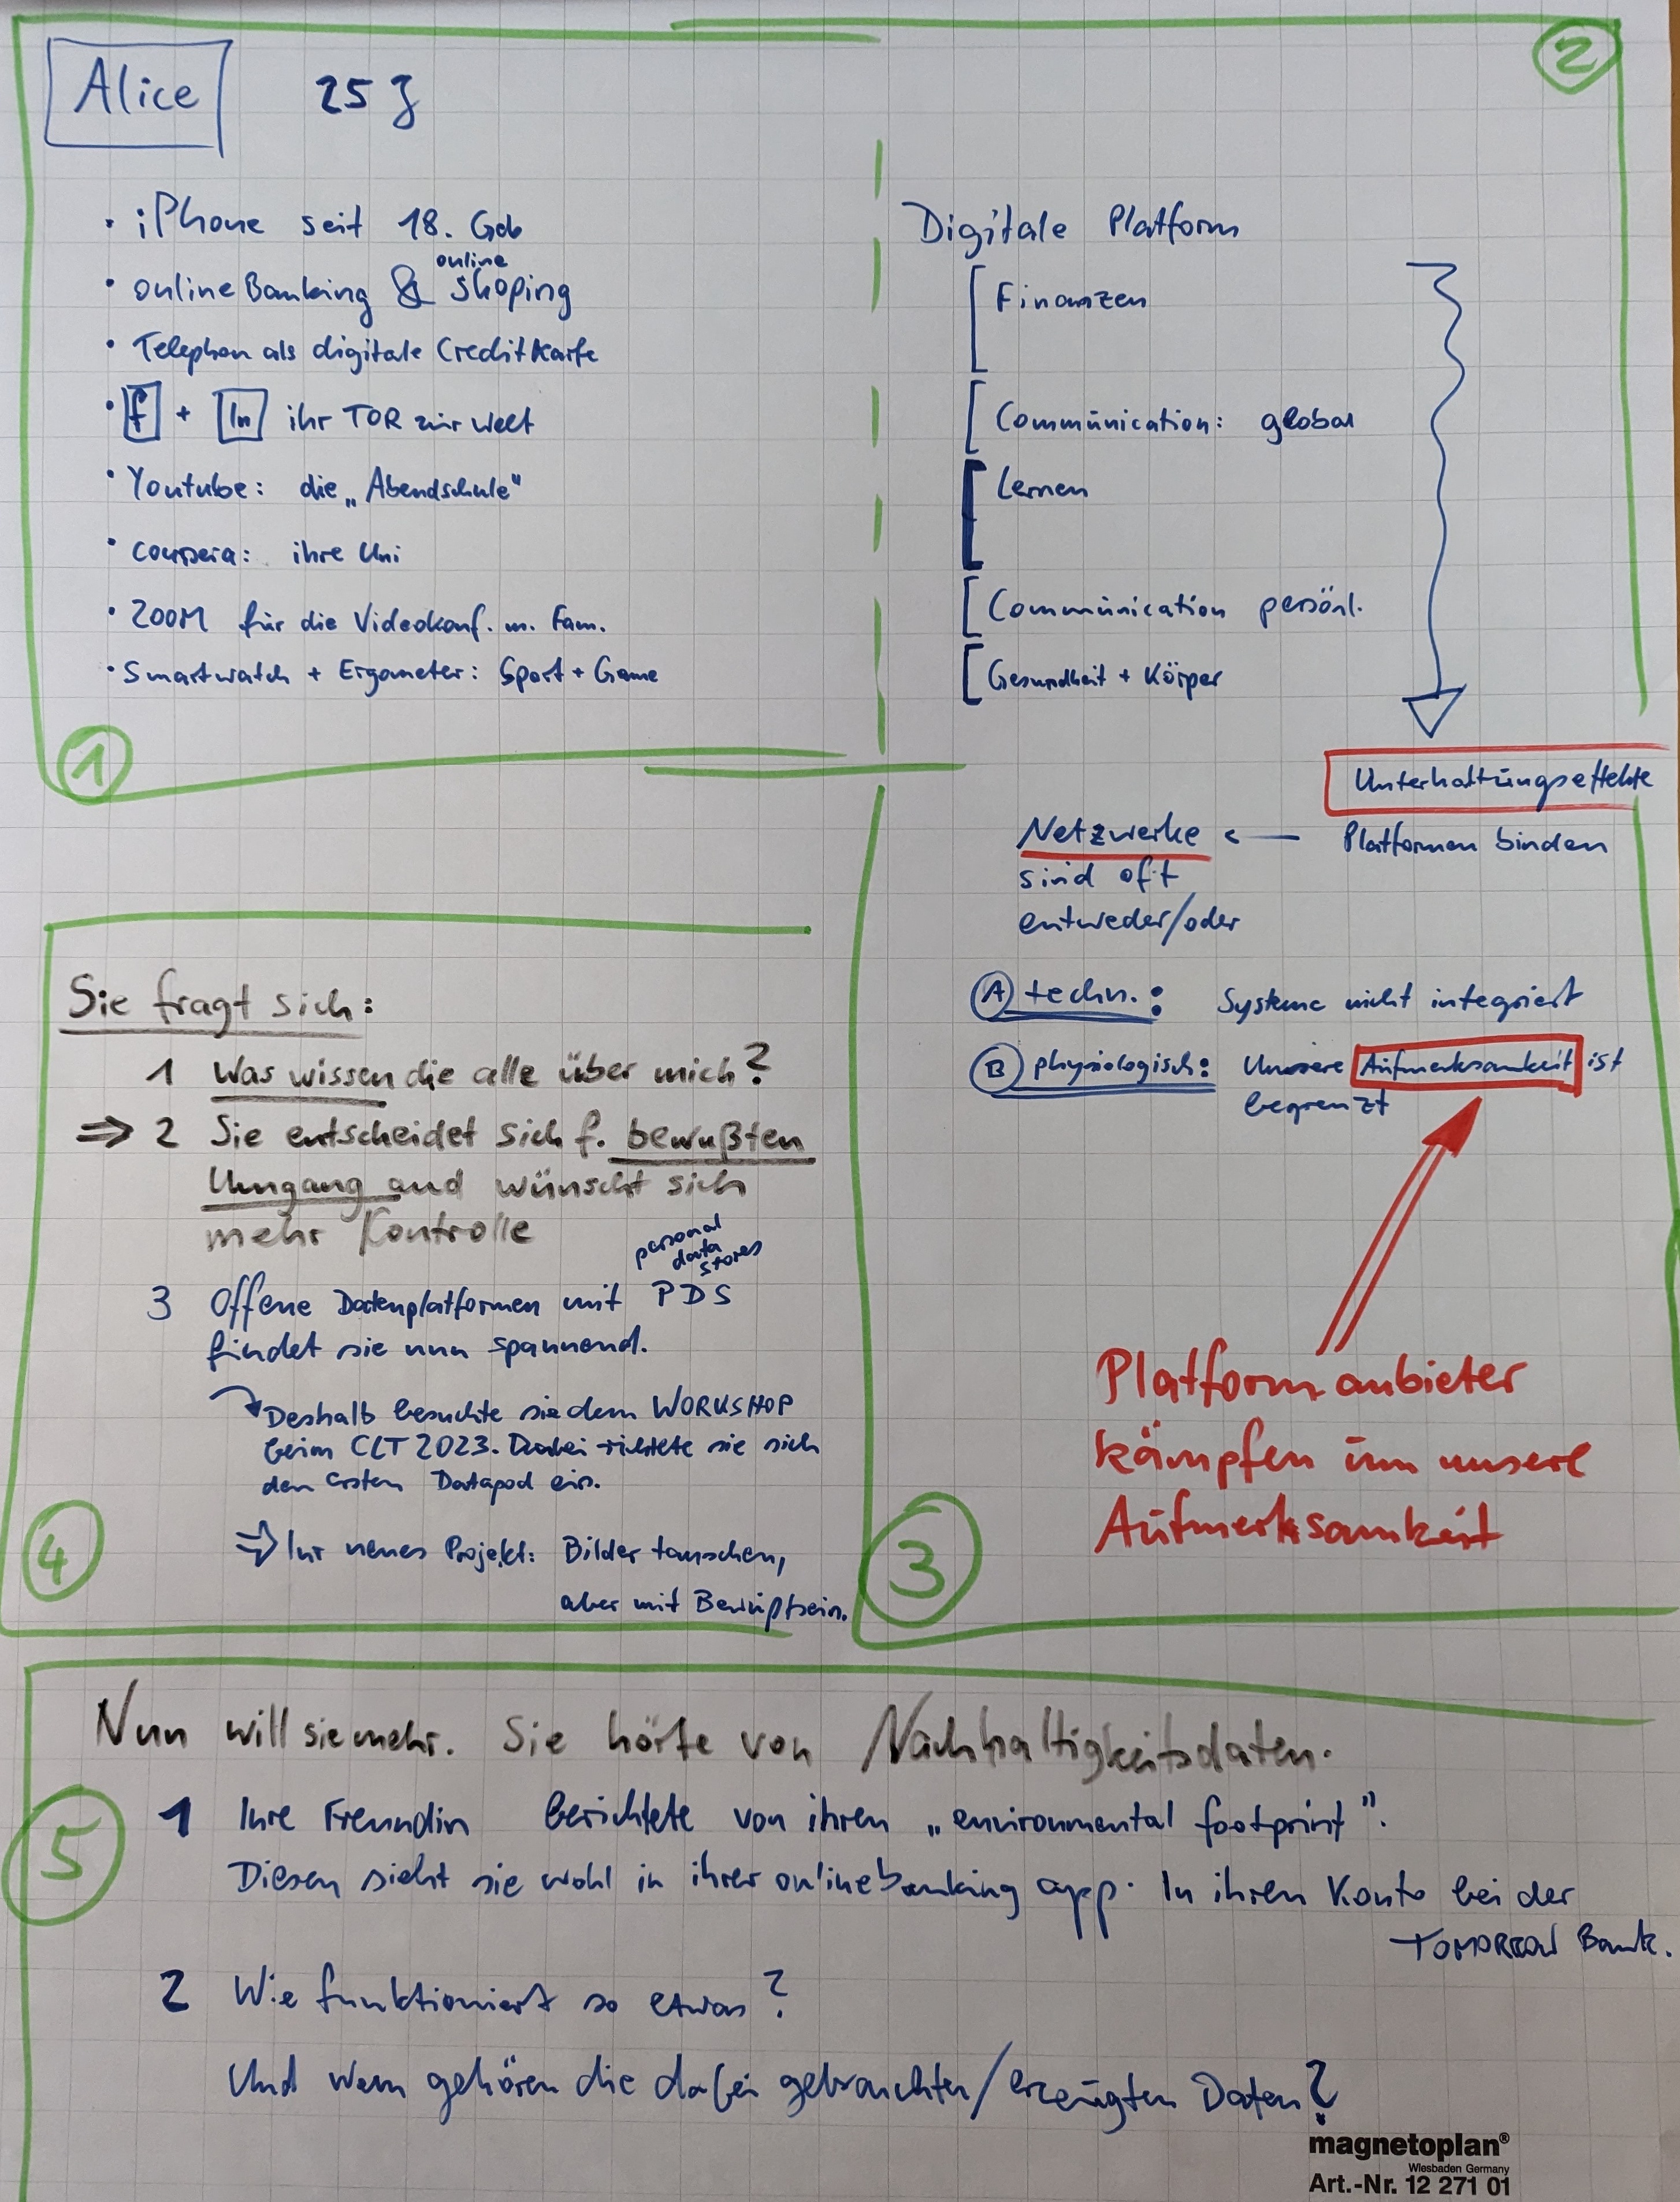 Alice 25 J
• iPhone seit 18. Geb
online
• onlineBanking & shoping
• Telephon als digitale CreditKarte
• f + In ihr TOR zur Welt
• Youtube: die „Abendschule"
• coursera: ihre Uni
• ZOOM für die Videokonf. m. Fam.
• Smartwatch + Ergometer: Sport + Game
1
2
Digitale Platform
Finanzen
Communication: global
Lernen
Communication persönl.
Gesundheit + Körper
Unterhaltungseffekte
Netzwerke <— Platformen binden
sind oft
entweder/oder
A techn.: Systeme nicht integriert
B physiologisch: Unsere Aufmerksamkeit ist
begrenzt
Platformanbieter
kämpfen um unsere
Aufmerksamkeit
3
Sie fragt sich:
1 Was wissen die alle über mich?
⇒ 2 Sie entscheidet sich f. bewußten
Umgang und wünscht sich
mehr Kontrolle
personal
data
stores
3 Offene Datenplatformen mit PDS
findet sie nun spannend.
Deshalb besuchte sie den WORKSHOP
beim CLT 2023. Dabei richtete sie sich
den ersten Datapod ein.
⇒ Ihr neues Projekt: Bilder tauschen,
aber mit Bewußtsein.
4
Nun will sie mehr. Sie hörte von Nachhaltigkeitsdaten.
5
1 Ihre Freundin berichtete von ihren „environmental footprint".
Diesen sieht sie wohl in ihrer onlinebanking app. In ihren Konto bei der
TOMORROW Bank.
2 Wie funktioniert so etwas?
Und wem gehören die dabei gebrauchten/erzeugten Daten?
magnetoplan®
Wiesbaden Germany
Art.-Nr. 12 271 01